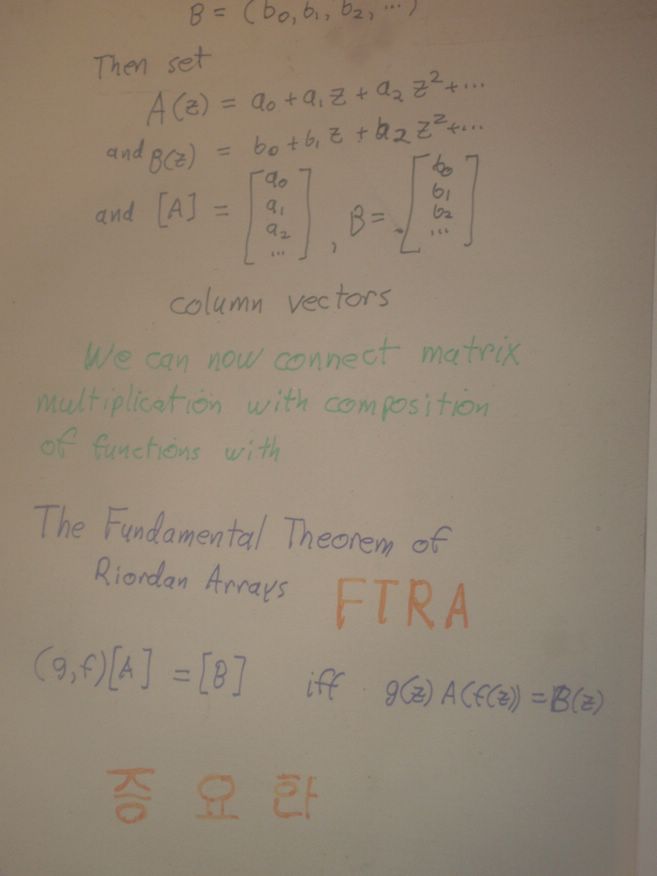 B = (b₀, b₁, b₂, ...)
Then set
A(z) = a₀ + a₁ z + a₂ z² + ...
and B(z) = b₀ + b₁ z + b₂ z² + ...
and [A] = [a₀ a₁ a₂ ...], B = [b₀ b₁ b₂ ...]
column vectors
We can now connect matrix
multiplication with composition
of functions with
The Fundamental Theorem of
Riordan Arrays FTRA
(g,f)[A] = [B] iff g(z) A(f(z)) = B(z)
중요한